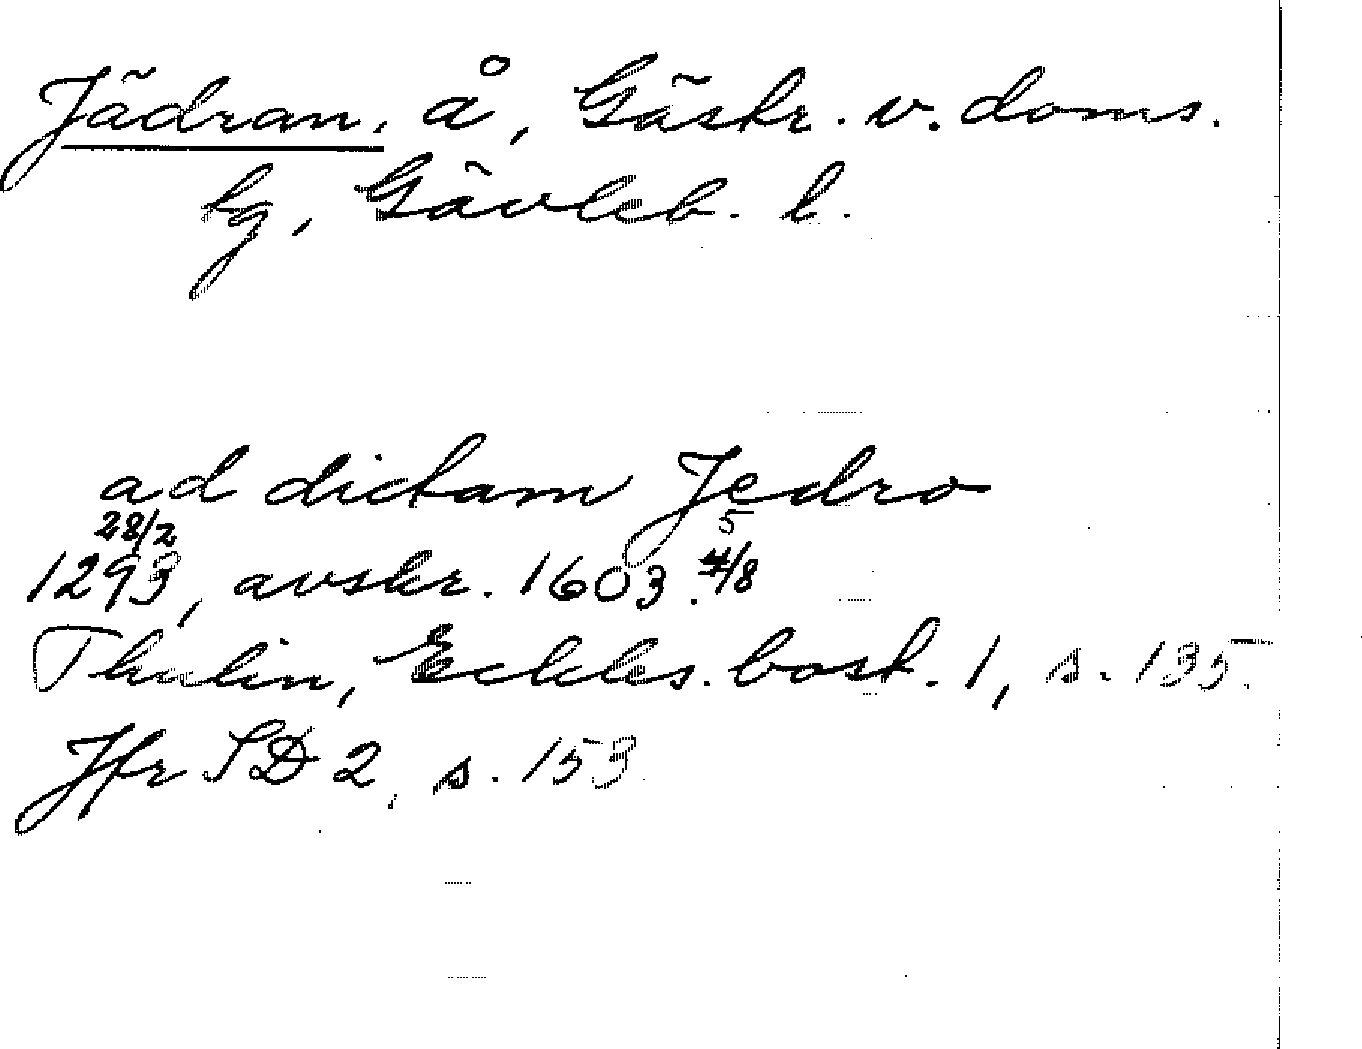 Jädran, å, Gästr. v. doms.
lg, Gävleb. l.
ad dictam Jedro
28/2 5
1293, avskr. 1603. 4/8
Thulin, Eckles. bost. 1, s. 135.
Jfr SD 2, s. 153